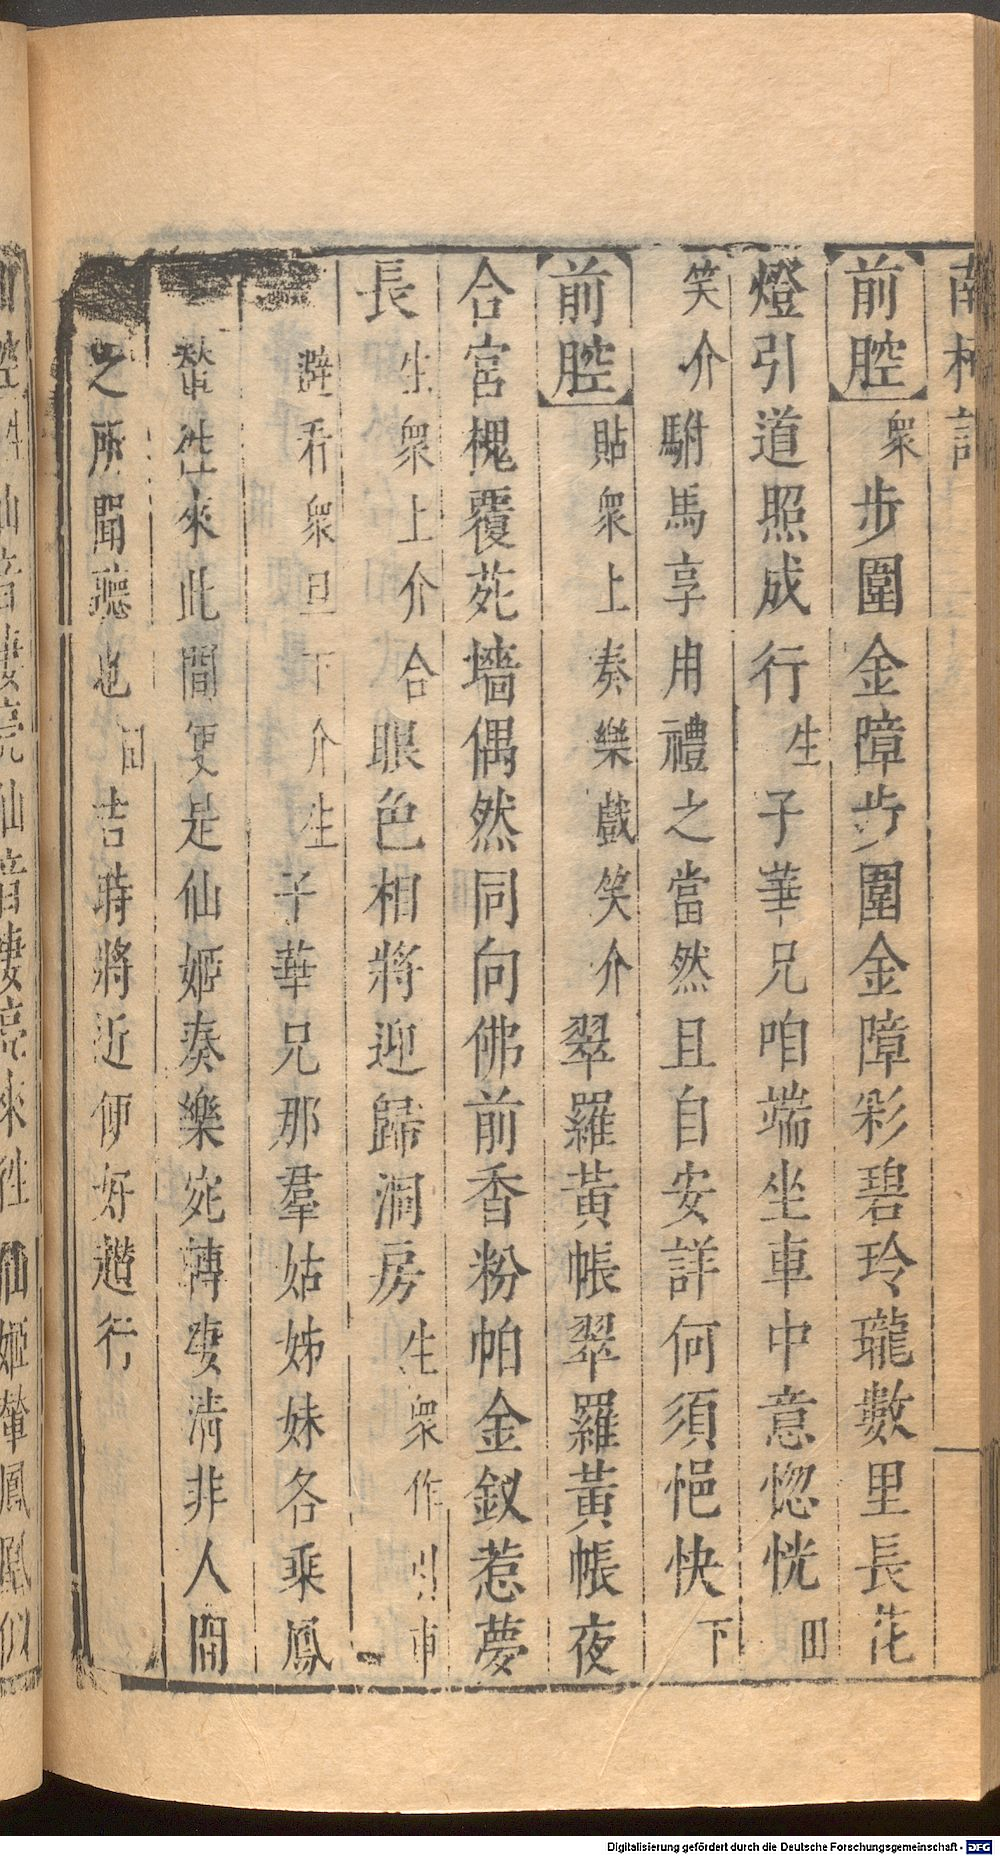 前腔衆步圍金障步圍金障彩碧玲瓏數里長花
燈引道照成行生子華兄咱端坐車中意惚恍田
笑介駙馬享用禮之當然且自安詳何須悒怏下
前腔貼衆上奏樂戲笑介翠羅黃帳翠羅黃帳夜
合宮槐覆苑墻偶然同向佛前香粉帕金釵惹夢
長生衆上介合眼色相將迎歸洞房生衆作引車
避看衆旦下介生子華兄那羣姑姊妹各乘鳳
輦往來此間便是仙姬奏樂宛轉凄清非人間
之所聞聽也田吉時將近便好趲行
Digitalisierung gefördert durch die Deutsche Forschungsgemeinschaft - DFG